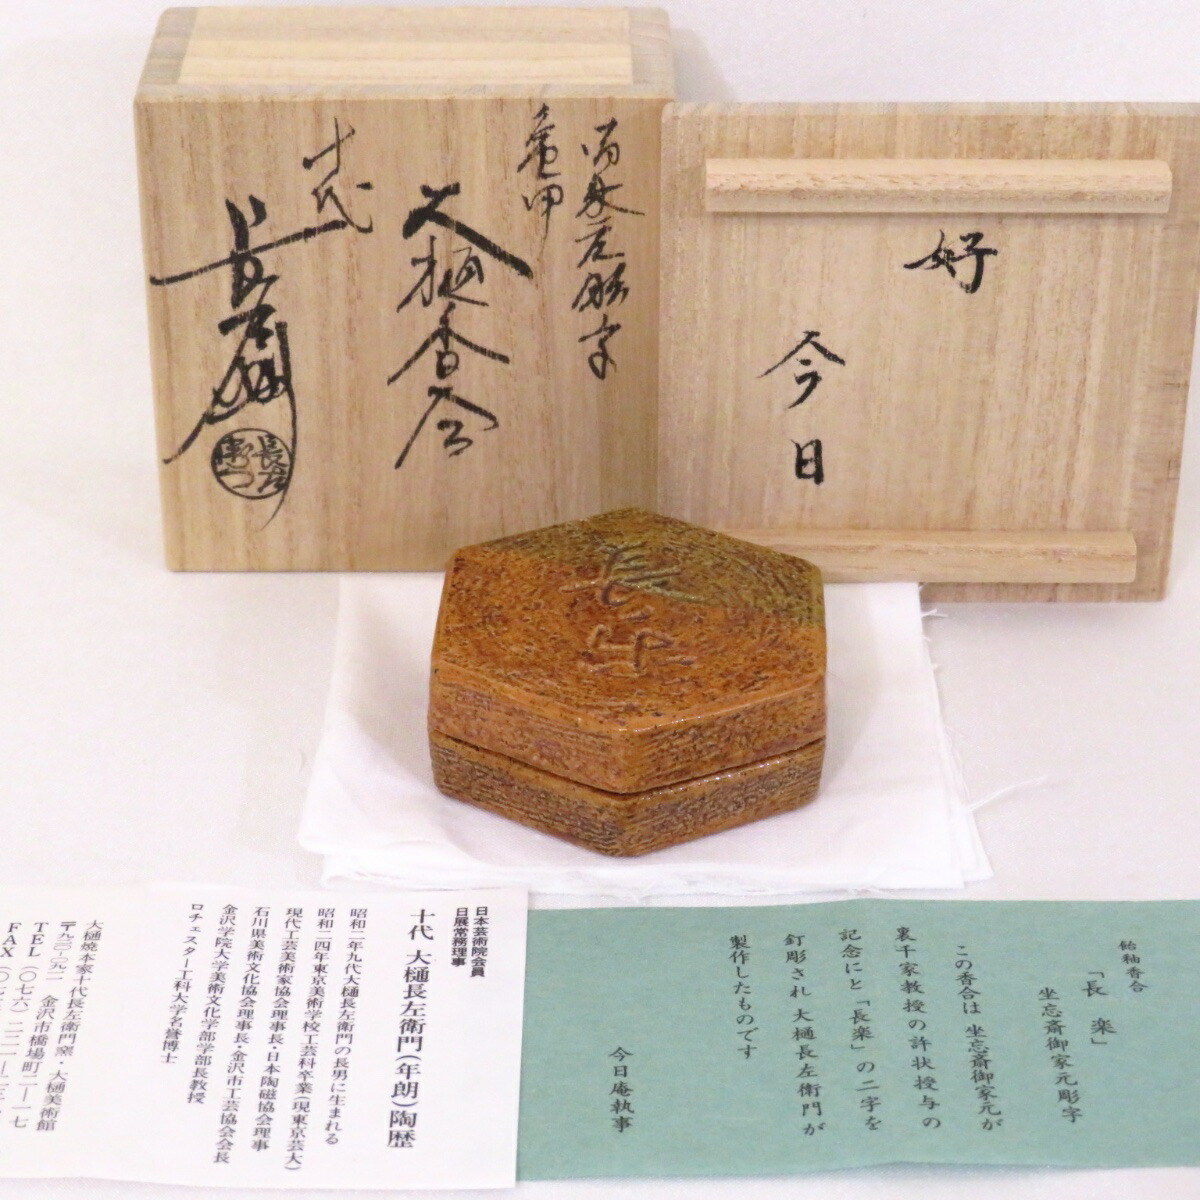 亀甲
大樋香合
十代
長左衛門
好
今日
長
飴釉香合
「長楽」
坐忘斎御家元彫字
この香合は 坐忘斎御家元が
裏千家教授の許状授与の
記念にと「長楽」の二字を
釘彫され 大樋長左衛門が
製作したものです
今日庵執事
日本芸術院会員
日展常務理事
十代 大樋長左衛門(年朗)陶歴
昭和二年九代大樋長左衛門の長男に生まれる
昭和二四年東京美術学校工芸科卒業(現東京芸大)
現代工芸美術家協会理事長・日本陶磁協会理事
石川県美術文化協会理事長・金沢市工芸協会会長
金沢学院大学美術文化学部学部長教授
ロチェスター工科大学名誉博士
大樋焼本家十代長左衛門窯・大樋美術館
金沢市橋場町二―一七
TEL(〇七六)二二一―
FAX(〇七